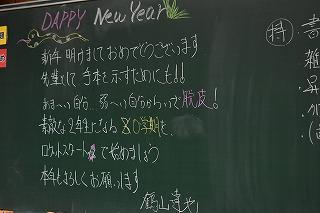 DAPPY New Year
新年 明けましておめでとうございます
先輩として 手本を示すためにも!!
あま〜い自分、弱〜い自分からいざ脱皮!
素敵な2年生になる ため、
ロケットスタートで始めましょう
本年もよろしくお願いします
特
書